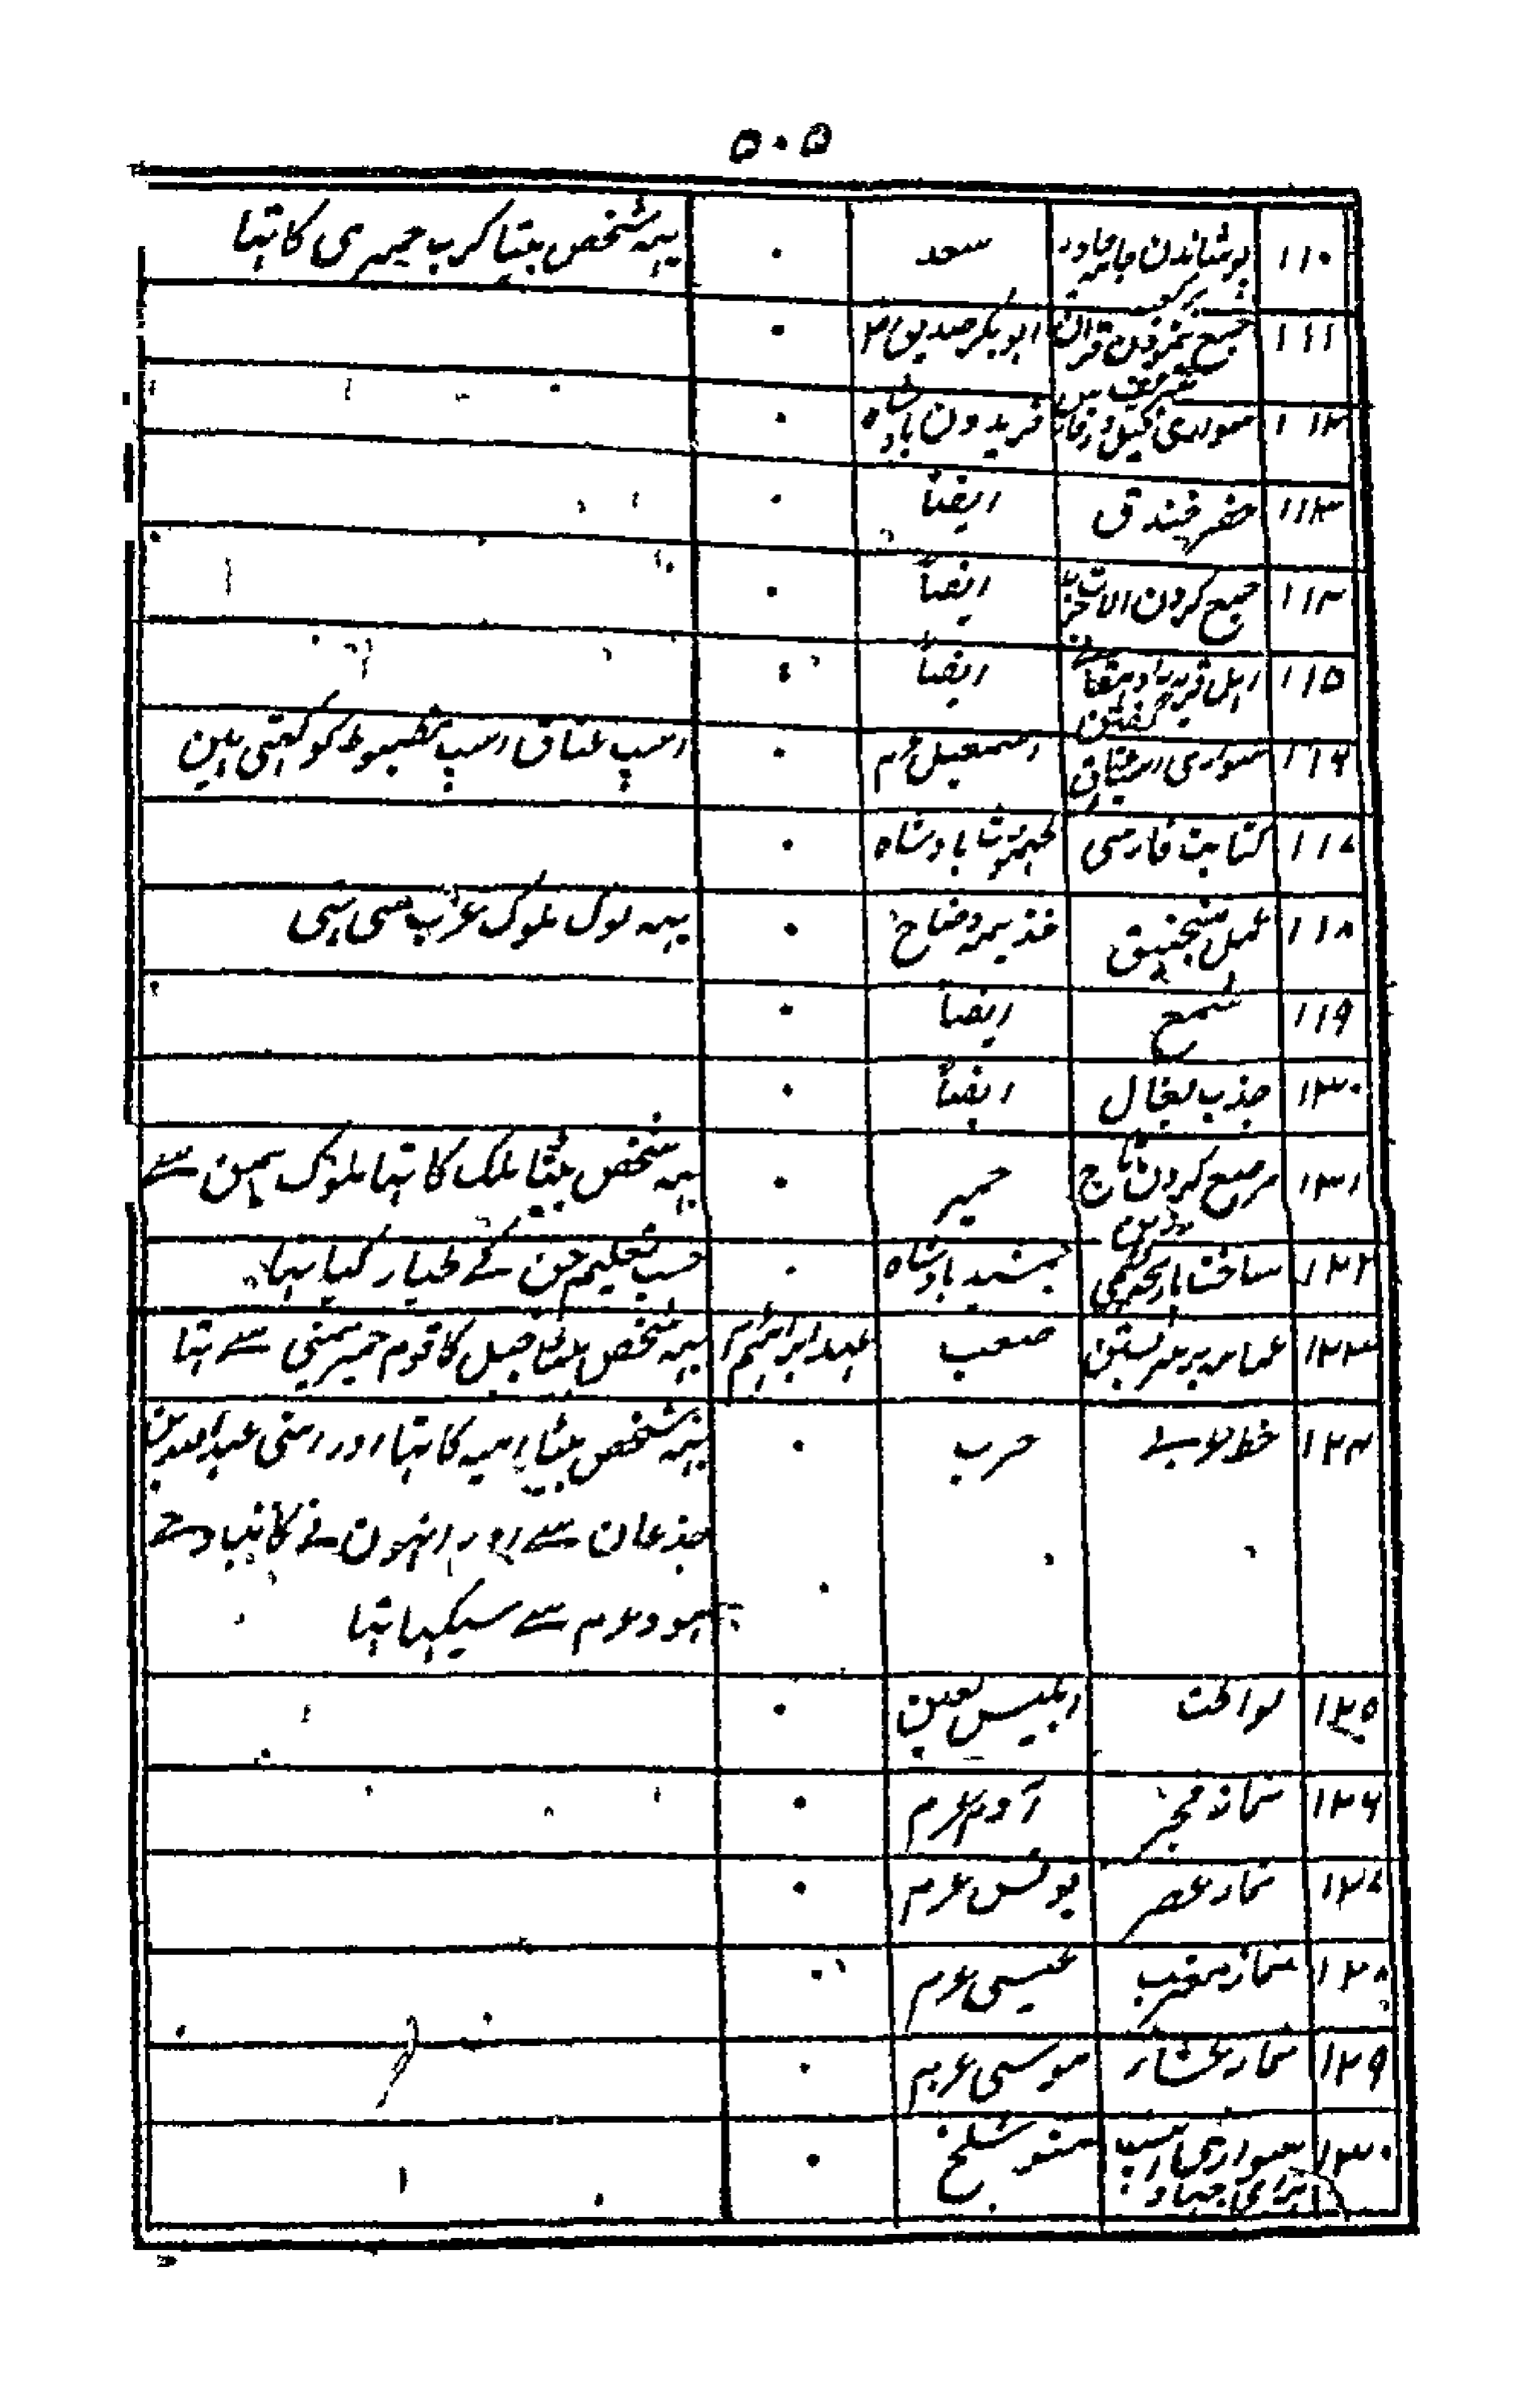 ۵۰۵
۱۱۰ پوشاندن جامہ چادر سعد ۰ یہہ شخص بیٹا کرب حمیری کا تہا
۱۱۱ جمع نمودن قران شریف ابوبکر صدیق رض ۰
۱۱۲ سواری فیل فریدون بادشاہ ۰
۱۱۳ حفر خندق ایضاً ۰
۱۱۴ جمع کردن الات حرب ایضاً ۰
۱۱۵ اہل قریہ را دہقان گفتن ایضاً ۰
۱۱۶ سواری اسپ عتاق اسمعیل عرم ۰ اسپ عتاق اسپ مضبوط کو کہتی ہین
۱۱۷ کتابت فارسی طہمورث بادشاہ ۰
۱۱۸ عمل منجنیق خذیمہ وضاح ۰ یہہ لوک ملوک عرب سی ہی
۱۱۹ شمع ایضاً ۰
۱۲۰ جذب بغال ایضاً ۰
۱۲۱ مرصع کردن تاج حمیر ۰ یہہ شخص بیٹا ملک کا تہا ملوک یمن سے
۱۲۲ ساخت جمشید بادشاہ ۰ حسب تعلیم جن کے طیار کیا تہا
۱۲۳ عمامہ بر سر بستن صعب عہد ابراہیم یہہ شخص بیٹا جبل کا قوم حمیر یمنی سے تہا
۱۲۴ خط حرب ۰ یہہ شخص بیٹا امیہ کا تہا اور اسنی عبداللہ بن
جذعان سے اور انہون نے کاتب
ہود عرم سے سیکہا تہا
۱۲۵ لواطت ابلیس لعین ۰
۱۲۶ نماز فجر آدم عرم ۰
۱۲۷ نماز عصر یونس عرم ۰
۱۲۸ نماز مغرب عیسی عرم ۰
۱۲۹ نماز عشاء موسی عرم ۰
۱۳۰ سواری اسپ برای جہاد متوشلخ ۰